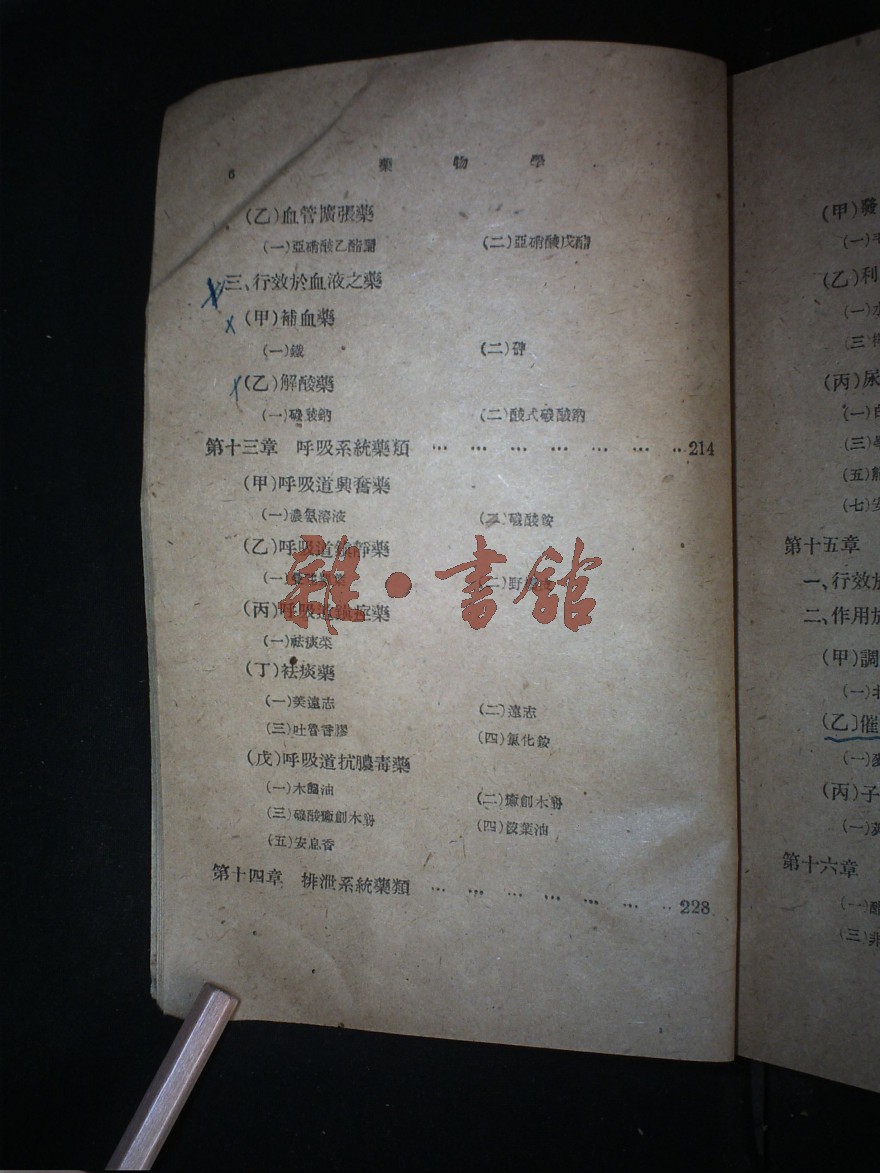 6 藥物學
(乙)血管擴張藥
(一)亞硝酸乙酯醑 (二)亞硝酸戊酯
三、行效於血液之藥
(甲)補血藥
(一)鐵 (二)砷
(乙)解酸藥
(一)碳酸鈉 (二)酸式碳酸鈉
第十三章 呼吸系統藥類 … … … … … … …214
(甲)呼吸道興奮藥
(一)濃氨溶液 (二)碳酸銨
(乙)呼吸道鎮靜藥
(一) (二)野
(丙)呼吸道鎮痙藥
(一)祛痰菜
(丁)祛痰藥
(一)美遠志 (二)遠志
(三)吐魯香膠 (四)氯化銨
(戊)呼吸道抗膿毒藥
(一)木餾油 (二)癒創木酚
(三)碳酸癒創木酚 (四)桉葉油
(五)安息香
第十四章 排泄系統藥類 … … … … … … ‥228
雜·書館
(甲)發
(一)
(乙)利
(一)
(三)
(丙)尿
(一)
(三)
(五)解
(七)安
第十五章
一、行效於
二、作用於
(甲)調
(一)
(乙)催
(一)麥
(丙)子
(一)
第十六章
(一)醋
(三)非